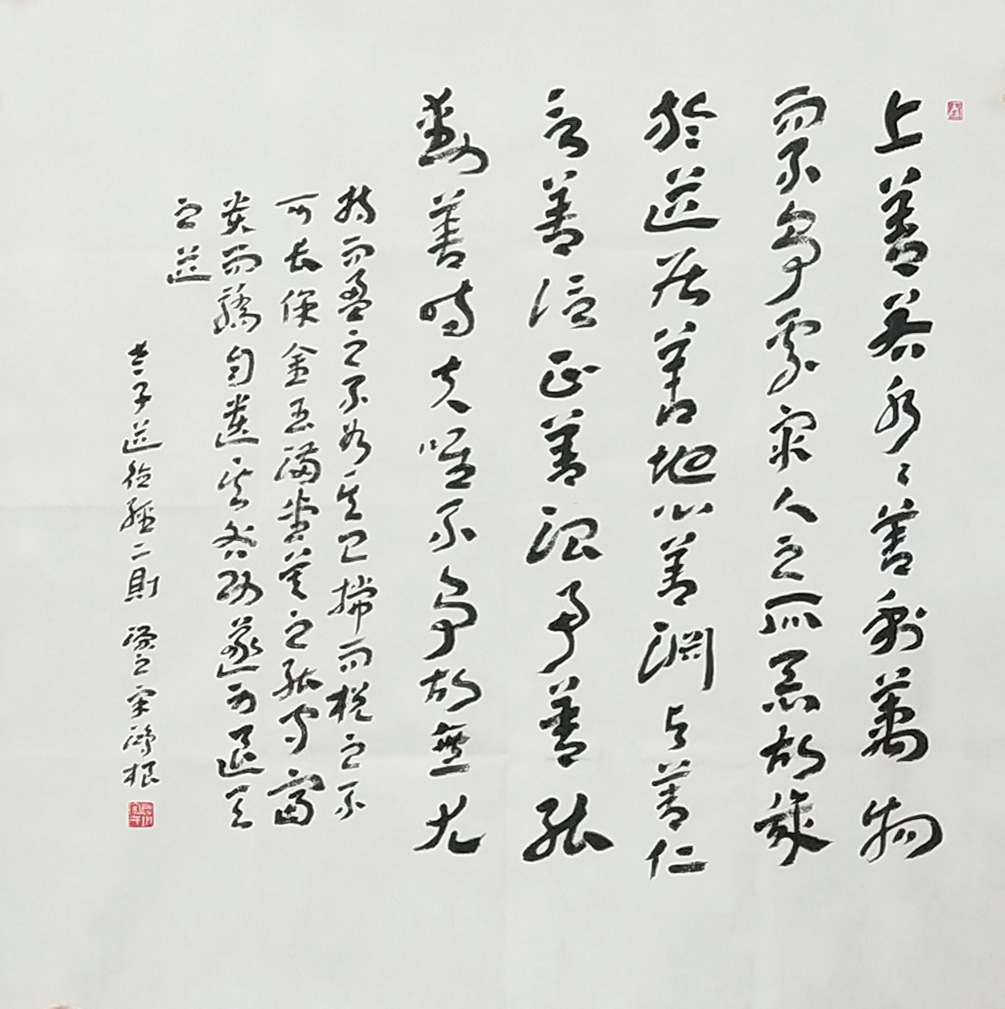 上善若水々善利萬物
而不爭處眾人之所惡故幾
於道居善地心善淵与善仁
言善信正善治事善能
動善時夫唯不爭故無尤
持而盈之不如其已揣而梲之不
可長保金玉滿堂莫之能守富
貴而驕自遺其咎功遂身退天
之道
老子道德經二則 宋鴻根